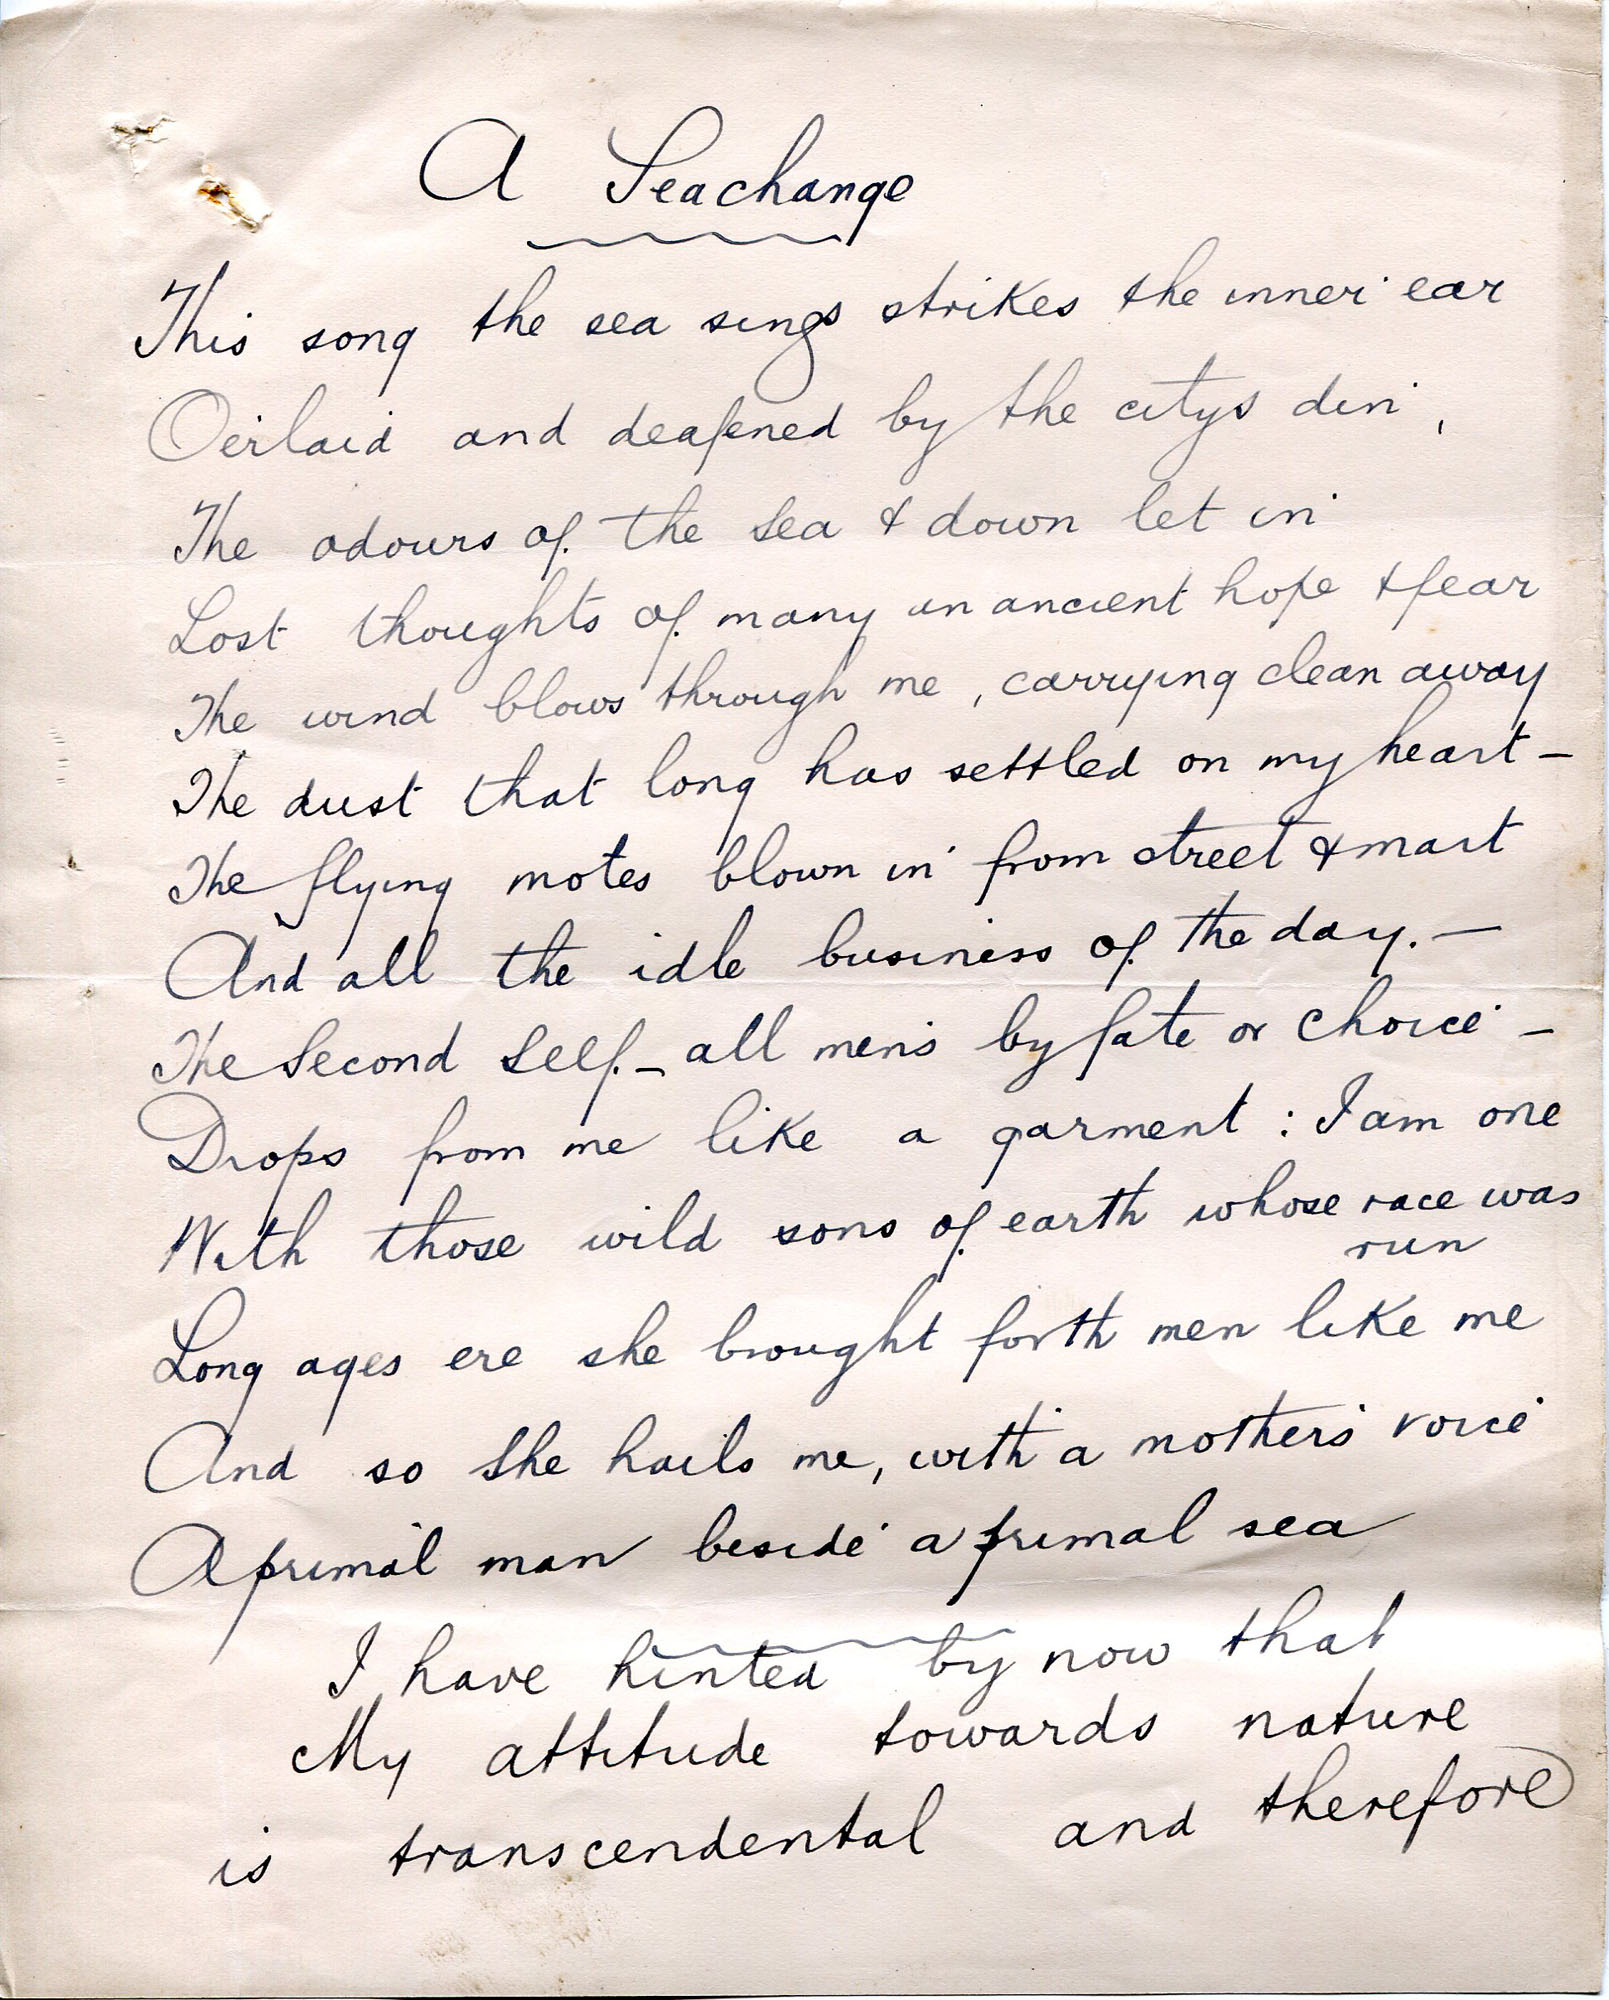 A Seachange
This song the sea sings strikes the inner ear
O'erlaid and deafened by the citys din,
The odours of the sea & down let in
Lost thoughts of many an ancient hope & fear
The wind blows through me, carrying clean away
The dust that long has settled on my heart –
The flying motes blown in from street & mart
And all the idle business of the day. –
The Second Self – all men's by fate or choice –
Drops from me like a garment : I am one
With those wild sons of earth whose race was
run
Long ages ere she brought forth men like me
And so she hails me, with a mother's voice
A primal man beside a primal sea
I have hinted by now that
My attitude towards nature
is transcendental and therefore